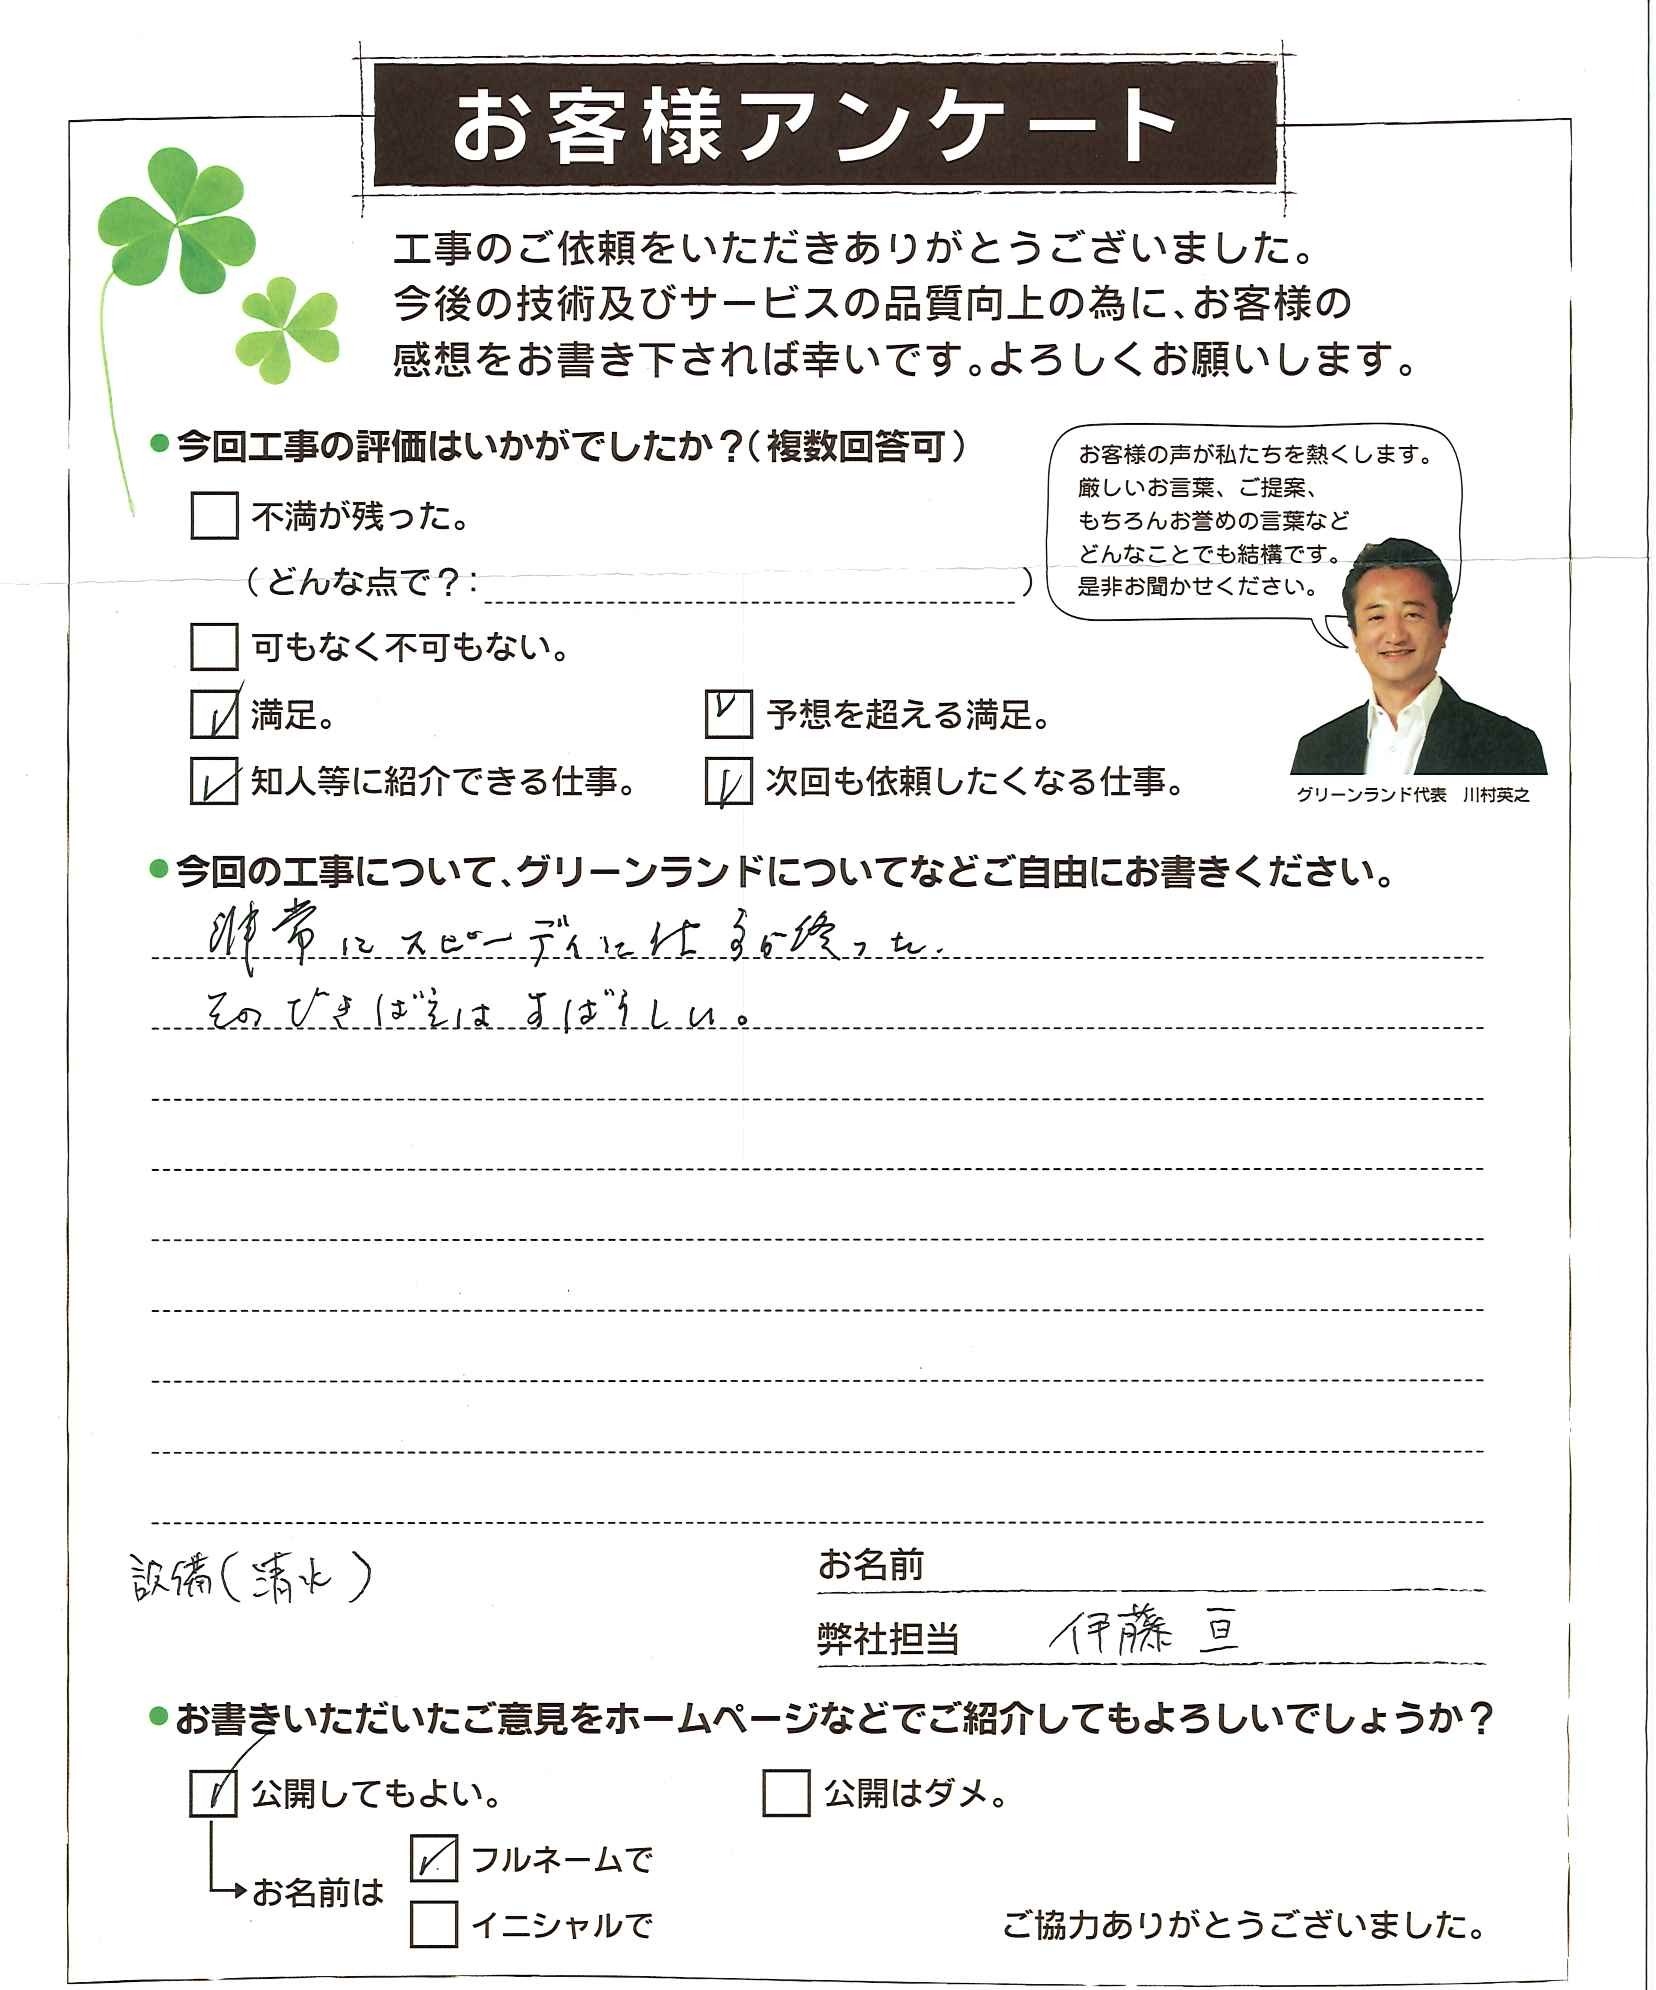 お客様アンケート
工事のご依頼をいただきありがとうございました。
今後の技術及びサービスの品質向上の為に、お客様の
感想をお書き下されば幸いです。よろしくお願いします。
●今回工事の評価はいかがでしたか？（複数回答可）
不満が残った。
（どんな点で？：　）
可もなく不可もない。
満足。
予想を超える満足。
知人等に紹介できる仕事。
次回も依頼したくなる仕事。
お客様の声が私たちを熱くします。
厳しいお言葉、ご提案、
もちろんお誉めの言葉など
どんなことでも結構です。
是非お聞かせください。
グリーンランド代表　川村英之
●今回の工事について、グリーンランドについてなどご自由にお書きください。
非常にスピーディに仕事が終った.
そのできばえはすばらしい。
設備(清水)
お名前
弊社担当　伊藤 亘
●お書きいただいたご意見をホームページなどでご紹介してもよろしいでしょうか？
公開してもよい。
公開はダメ。
お名前は
フルネームで
イニシャルで
ご協力ありがとうございました。